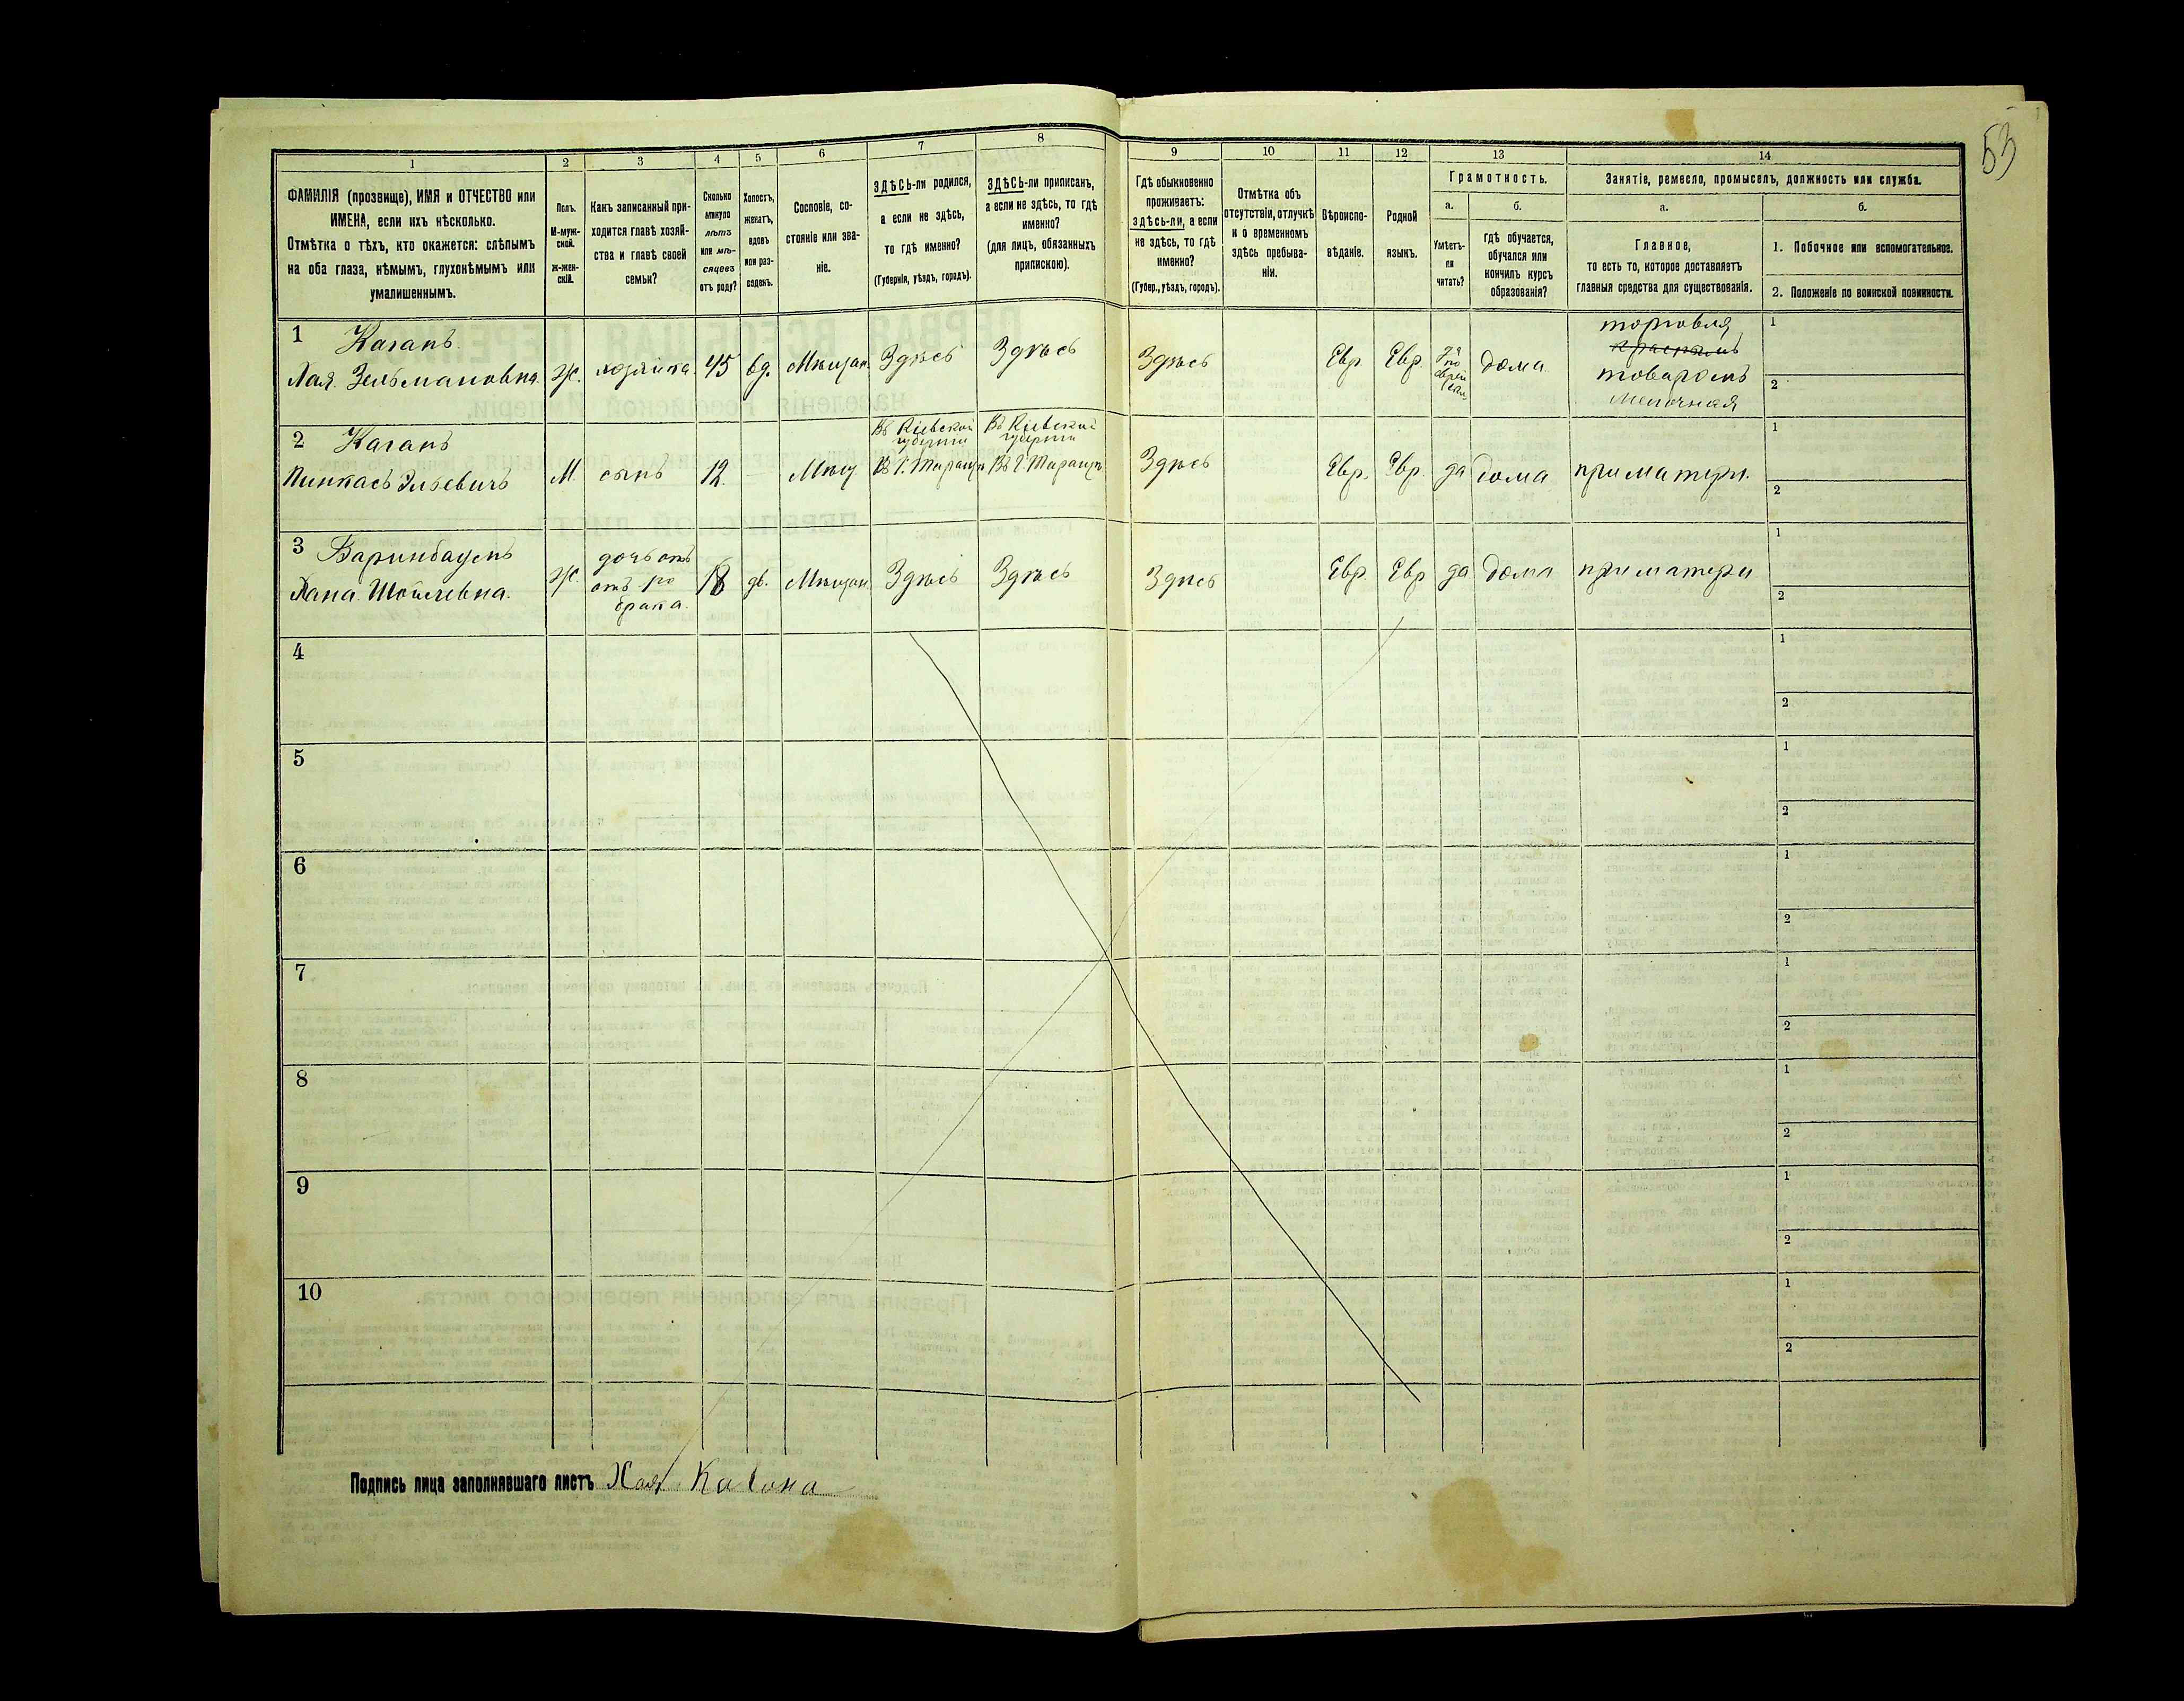 53
1 2 3 4 5 6 7 8 9 10 11 12 13 14
ФАМИЛІЯ (прозвище), ИМЯ и ОТЧЕСТВО или
ИМЕНА, если ихъ нѣсколько.
Отмѣтка о тѣхъ, кто окажется: слѣпымъ
на оба глаза, нѣмымъ, глухонѣмымъ или
умалишеннымъ.
Полъ.
М-муж-
ской.
ж-жен-
скій.
Какъ записанный при-
ходится главѣ хозяй-
ства и главѣ своей
семьи?
Сколько
минуло
лѣтъ
или мѣ-
сяцевъ
отъ роду?
Холостъ,
женатъ,
вдовъ
или раз-
веденъ.
Сословіе, со-
стояніе или зва-
ніе.
ЗДѢСЬ-ли родился,
а если не здѣсь,
то гдѣ именно?
(Губернія, уѣздъ, городъ).
ЗДѢСЬ-ли приписанъ,
а если не здѣсь, то гдѣ
именно?
(для лицъ, обязанныхъ
припискою).
Гдѣ обыкновенно
проживаетъ:
здѣсь-ли, а если
не здѣсь, то гдѣ
именно?
(Губер., уѣздъ, городъ).
Отмѣтка объ
отсутствіи, отлучкѣ
и о временномъ
здѣсь пребыва-
ніи.
Вѣроиспо-
вѣданіе.
Родной
языкъ.
Грамотность.
а.
Умѣетъ-
ли
читать?
б.
гдѣ обучается,
обучался или
кончилъ курсъ
образованія?
Занятіе, ремесло, промыселъ, должность или служба.
а.
Главное,
то есть то, которое доставляетъ
главныя средства для существованія.
б.
1. Побочное или вспомогательное.
2. Положеніе по воинской повинности.
1 Каганъ
Хая Зельмановна. Ж. хозяйка 45 вд. Мѣщан. Здѣсь Здѣсь Здѣсь Евр. Евр. дома
торговля
краснымъ
товаромъ
мелочная
1
2
2 Каганъ
Въ Кіевской
губерніи
Въ Кіевской
губерніи
Пинкасъ Эльевичъ М. сынъ 12 Мѣщ. Въ Г. Таращѣ Въ Г. Таращѣ Здѣсь Евр. Евр. да дома при матери.
1
2
3 Баринбаумъ
Хана Шоилевна. Ж. дочь отъ 18 дв. Мѣщан. Здѣсь Здѣсь Здѣсь Евр. Евр да дома при матери
брака.
1
2
4
1
2
5
1
2
6
1
2
7
1
2
8
1
2
9
1
2
10
1
2
Подпись лица заполнявшаго листъ Хая Кагана